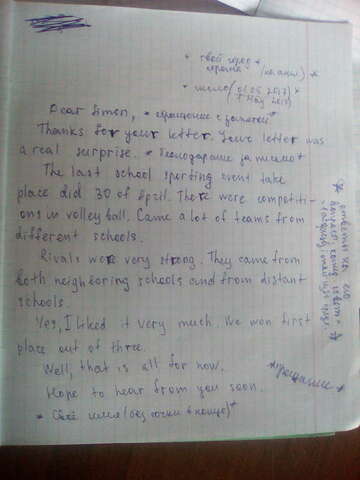 * твой город
страна (на англ) *
* число (01.05.2017) *
1 May 2017
Dear Simon, * обращение с запятой
Thanks for your letter. Your letter was
a real surprise. * благодарание за письмо *
The last school sporting event take
place did 30 of April. There were competiti-
ons in volleyball. Came a lot of teams from
different schools.
Rivals were very strong. They came from
both neighboring schools and from distant
schools.
Yes, I liked it very much. We won first
place out of three.
Well, that is all for now.
Hope to hear from you soon.
* Своё имя (без точки в конце) *
* прощание *
* ответы на его